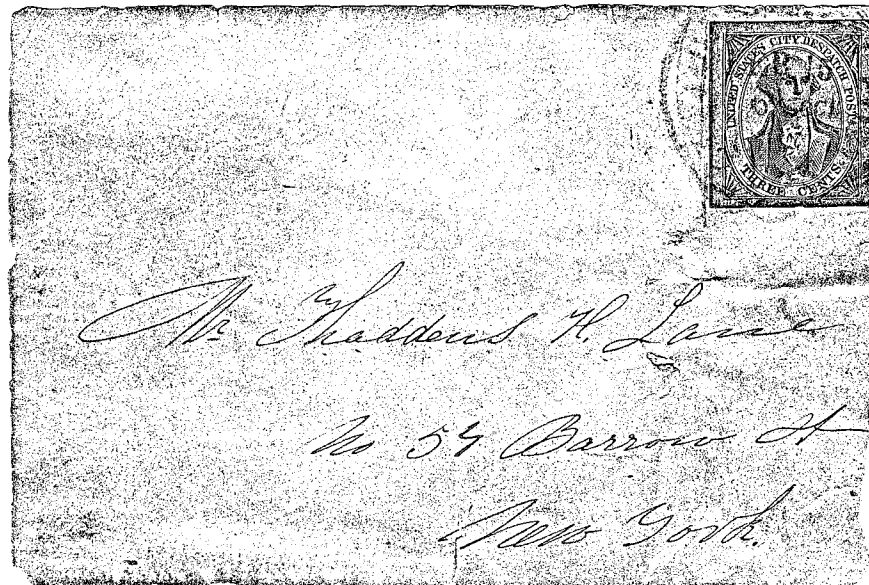 UNITED STATES CITY DESPATCH POST
THREE CENTS
Mr Thaddeus H. Lane
No 54 Barrow St
New York.